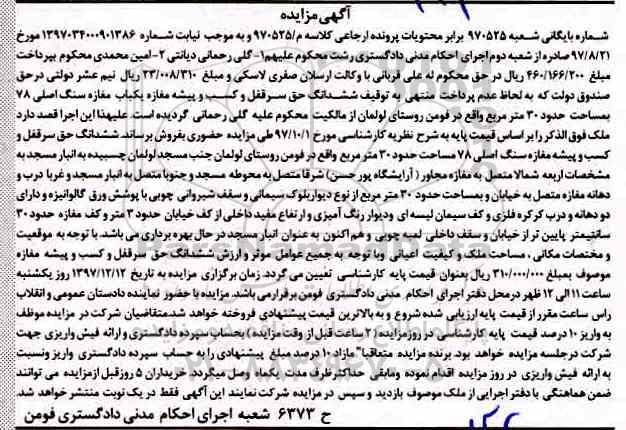 آگهی مزایده
شماره بایگانی شعبه ۹۷۰۵۲۵ برابر محتویات پرونده ارجاعی کلاسه م/۹۷۰۵۲۵ و به موجب نیابت شماره ۱۳۹۷۰۳۴۰۰۰۹۰۱۳۸۶ مورخ
۹۷/۸/۲۱ صادره از شعبه دوم اجرای احکام مدنی دادگستری رشت محکوم علیهم ۱- گلی رحمانی دیانتی ۲- امین محمدی محکوم بپرداخت
مبلغ ۴۶۰/۱۶۶/۲۰۰ ریال در حق محکوم له علی قربانی با وکالت ارسلان صفری لاسکی و مبلغ ۲۳/۰۰۸/۳۱۰ ریال نیم عشر دولتی در حق
صندوق دولت که به لحاظ عدم پرداخت منتهی به توقیف ششدانگ حق سرقفل و کسب و پیشه مغازه یکباب مغازه سنگ اصلی ۷۸
بمساحت حدود ۳۰ متر مربع واقع در فومن روستای لولمان از مالکیت محکوم علیه گلی رحمانی گردیده است. علیهذا این اجرا قصد دارد
ملک فوق الذکر را بر اساس قیمت پایه به شرح نظریه کارشناسی مورخ ۹۷/۱۰/۱ طی مزایده حضوری بفروش برساند. ششدانگ حق سرقفل و
کسب و پیشه مغازه سنگ اصلی ۷۸ مساحت حدود ۳۰ متر مربع واقع در فومن روستای لولمان جنب مسجد لولمان چسبیده به انبار مسجد به
مشخصات اربعه شمالا متصل به مغازه مجاور ( آرایشگاه پور حسن) شرقا متصل به محوطه مسجد و جنوبا متصل به انبار مسجد و غربا درب و
دهانه مغازه متصل به خیابان و بمساحت حدود ۳۰ متر مربع از نوع دیوار بلوک سیمانی و سقف شیروانی چوبی با پوشش ورق گالوانیزه و دارای
دو دهانه و درب کرکره فلزی و کف سیمان لیسه ای ودیوار رنگ آمیزی و ارتفاع مفید داخلی از کف خیابان حدود ۳ متر و کف مغازه حدود ۳۰
سانتیمتر پایین تر از خیابان و سقف داخلی لمبه چوبی و هم اکنون به عنوان انبار مسجد در حال بهره برداری می باشد. با توجه به موقعیت
و مختصات مکانی ، مساحت ملک و کیفیت اعیانی وبا توجه به جمیع عوامل موثر و ارزش ششدانگ حق سرقفل و کسب و پیشه مغازه
موصوف بمبلغ ۳۱۰/۰۰۰/۰۰۰ ریال بعنوان قیمت پایه کارشناسی تعیین می گردد. زمان برگزاری مزایده به تاریخ ۱۳۹۷/۱۲/۱۲ روز یکشنبه
ساعت ۱۱ الی ۱۲ ظهر درمحل دفتر اجرای احکام مدنی دادگستری فومن برقرار می باشد. مزایده با حضور نماینده دادستان عمومی و انقلاب
راس ساعت مقرر از قیمت پایه ارزیابی شده شروع و به بالاترین قیمت پیشنهادی فروخته خواهد شد. متقاضیان شرکت در مزایده موظف
به واریز ۱۰ درصد قیمت پایه کارشناسی در روز مزایده ( ۲ ساعت قبل از وقت مزایده) بحساب سپرده دادگستری و ارائه فیش واریزی جهت
شرکت درجلسه مزایده خواهد بود. برنده مزایده متعاقبا" مازاد ۱۰ درصد مبلغ پیشنهادی را به حساب سپرده دادگستری واریز ونسبت
به ارائه فیش واریزی در روز مزایده اقدام نموده ومابقی حداکثر ظرف مدت یکماه وصل میگردد. خریداران ۵ روز قبل از مزایده می توانند
ضمن هماهنگی با دفتر اجرایی از ملک موصوف بازدید و سپس در مزایده شرکت نمایند این آگهی فقط در یک نوبت منتشر خواهد شد.
ح ۶۳۷۳ شعبه اجرای احکام مدنی دادگستری فومن